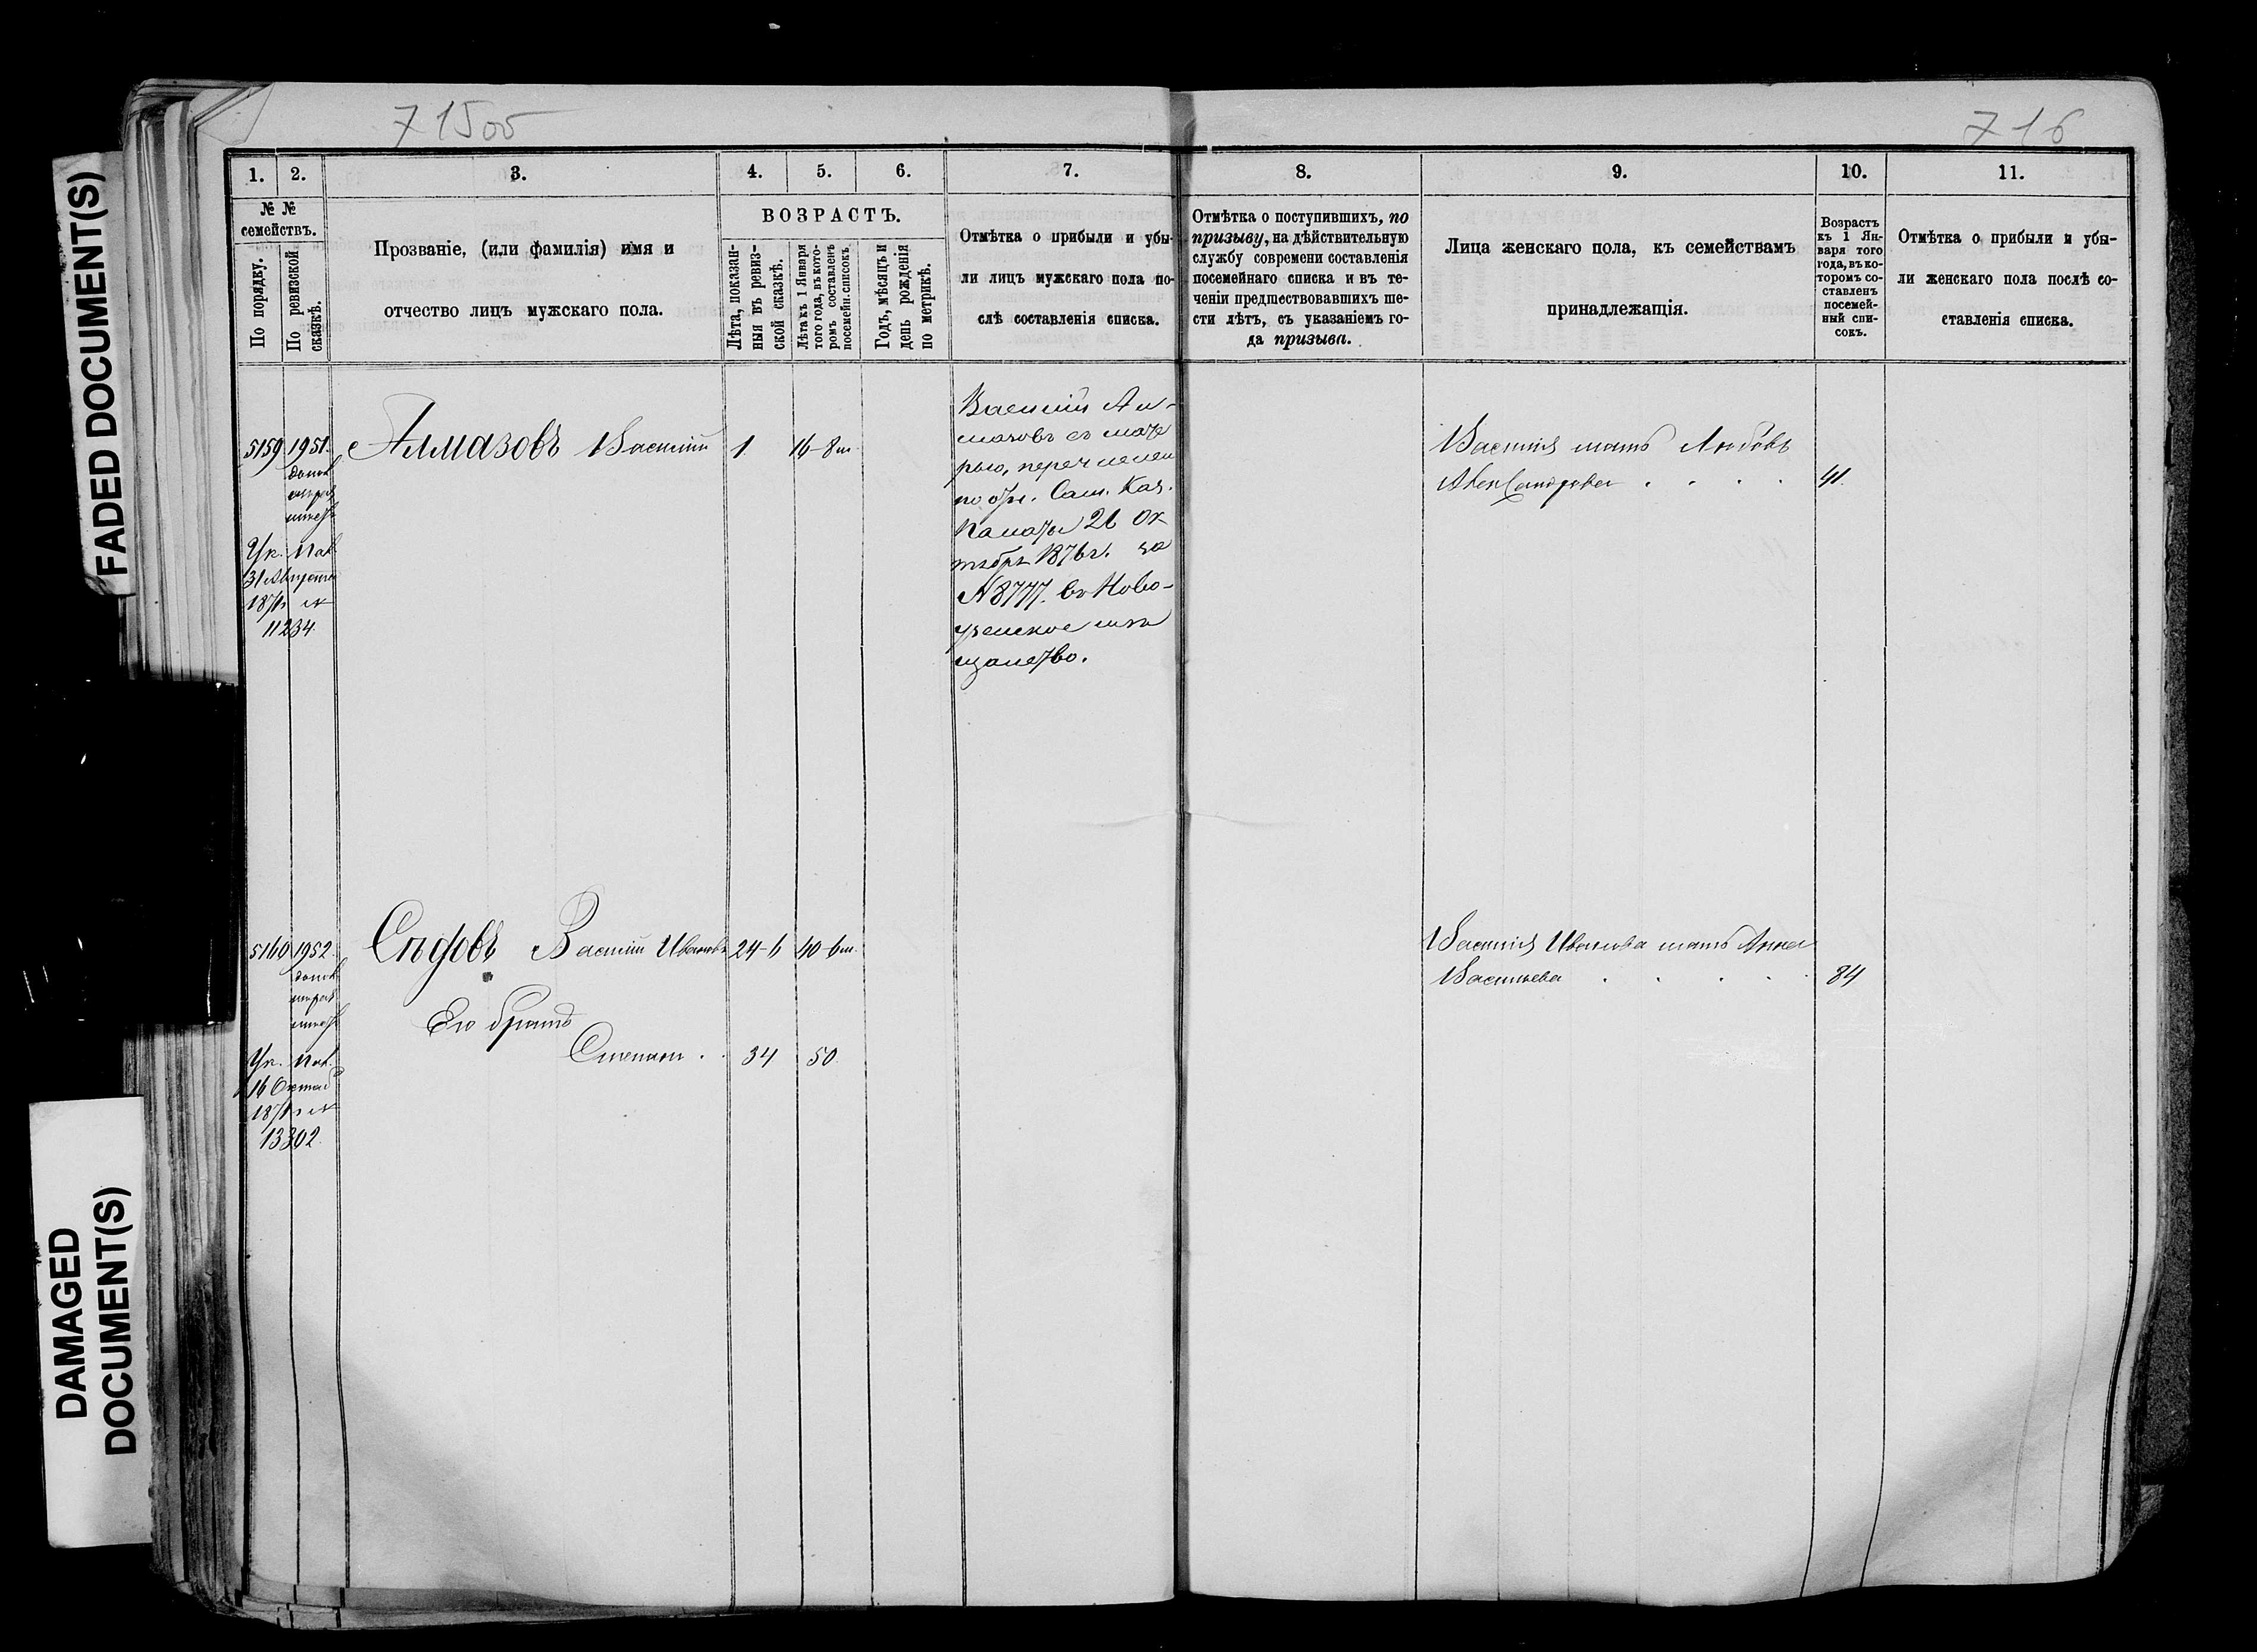 71500
716
FADED DOCUMENT(S)
DAMAGED
DOCUMENT(S)
1.
2.
3.
4.
5.
6.
7.
8.
9.
10.
11.
№ №
семействъ.
По порядку.
По ревизской
сказкѣ.
Прозваніе, (или фамилія) имя и
отчество лицъ мужскаго пола.
ВОЗРАСТЪ.
Лѣта, показан-
ныя въ ревиз-
ской сказкѣ.
Лѣта къ 1 Января
того года, въ кото-
ромъ составленъ
посемейн. списокъ
Годъ, мѣсяцъ и
день рожденія
по метрикѣ.
Отмѣтка о прибыли и убы-
ли лицъ мужскаго пола по-
слѣ составленія списка.
Отмѣтка о поступившихъ, по
призыву, на дѣйствительную
службу современи составленія
посемейнаго списка и въ те-
ченіи предшествовавшихъ ше-
сти лѣтъ, съ указаніемъ го-
да призыва.
Лица женскаго пола, къ семействамъ
принадлежащія.
Возрастъ
къ 1 Ян-
варя того
года, въ ко-
торомъ со-
ставленъ
посемей-
ный спи-
сокъ.
Отмѣтка о прибыли и убы-
ли женскаго пола послѣ со-
ставленія списка.
5159 1951.
Ук. Пал.
31 Августа
187
11234.
Алмазовъ Василій 1. 16-8м.
Василій Ал-
мазовъ съ мате
рью, перечислен
по опр. Сам. Каз.
Палаты 26 Ок
тября 1876г. за
№8777. въ Ново-
узенское мѣ
щанство.
Василія мать Любовь
Александрова . . . . 41.
5160 1952.
Ук. Пал.
16
187
13302.
Василій Ивановъ 24-6 40-6м.
Его братъ
Степанъ . . 34 50.
Василія Иванова мать Анна
Васильева . . . . . 84